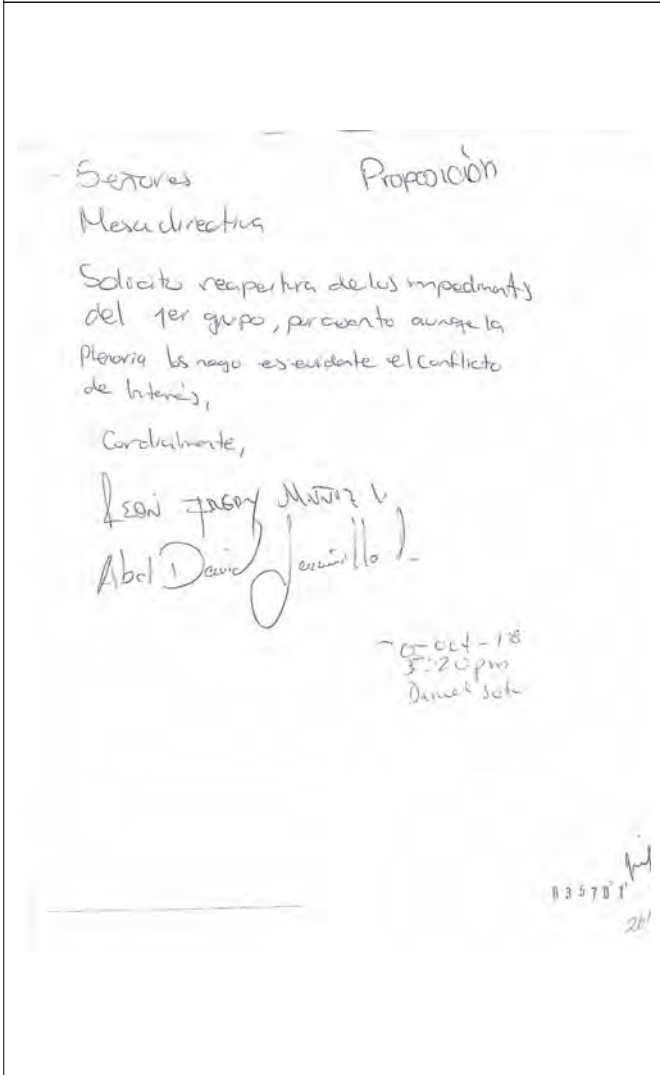 Proposición
Señores
Mesa directiva
Solicito reapertura de los impedments
del 1er grupo, por cuanto aunqe la
Plenaria los nego es evidente el Conflicto
de Interés,
Cordialmente,
León Fredy Muñoz L.
Abel David Jaramillo L.
oct-18
5:20 pm
Daniel